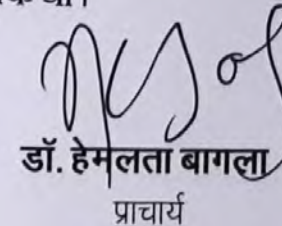 डॉ. हेमलता बागला
प्राचार्य